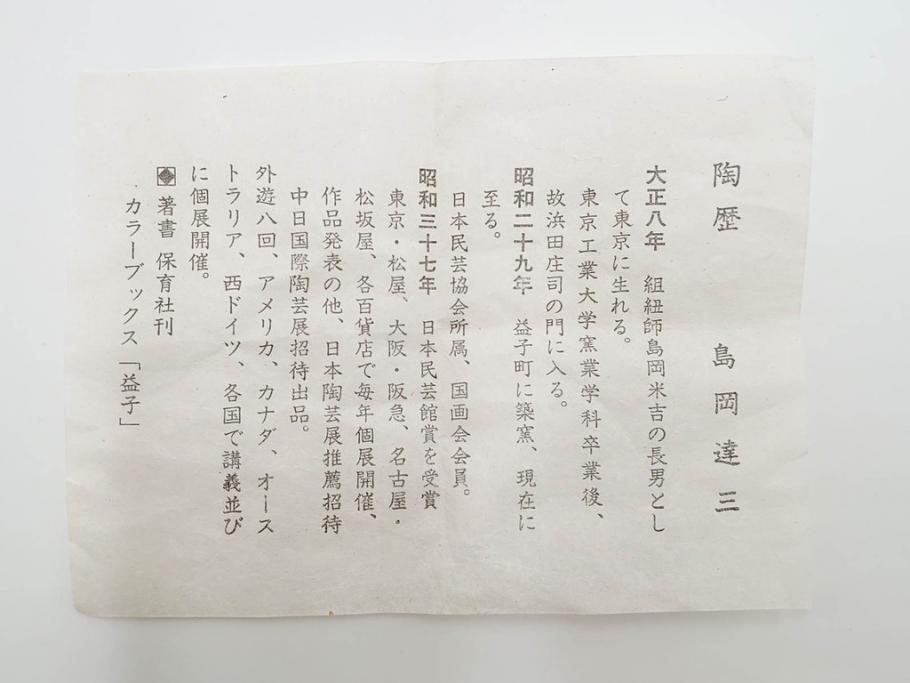 陶歴　島岡達三
大正八年　組紐師島岡米吉の長男とし
て東京に生れる。
東京工業大学窯業学科卒業後、
故浜田庄司の門に入る。
昭和二十九年　益子町に築窯、現在に
至る。
日本民芸協会所属、国画会会員。
昭和三十七年　日本民芸館賞を受賞
東京・松屋、大阪・阪急、名古屋・
松坂屋、各百貨店で毎年個展開催、
作品発表の他、日本陶芸展推薦招待
中日国際陶芸展招待出品。
外遊八回、アメリカ、カナダ、オース
トラリア、西ドイツ、各国で講義並び
に個展開催。
著書 保育社刊
カラーブックス「益子」